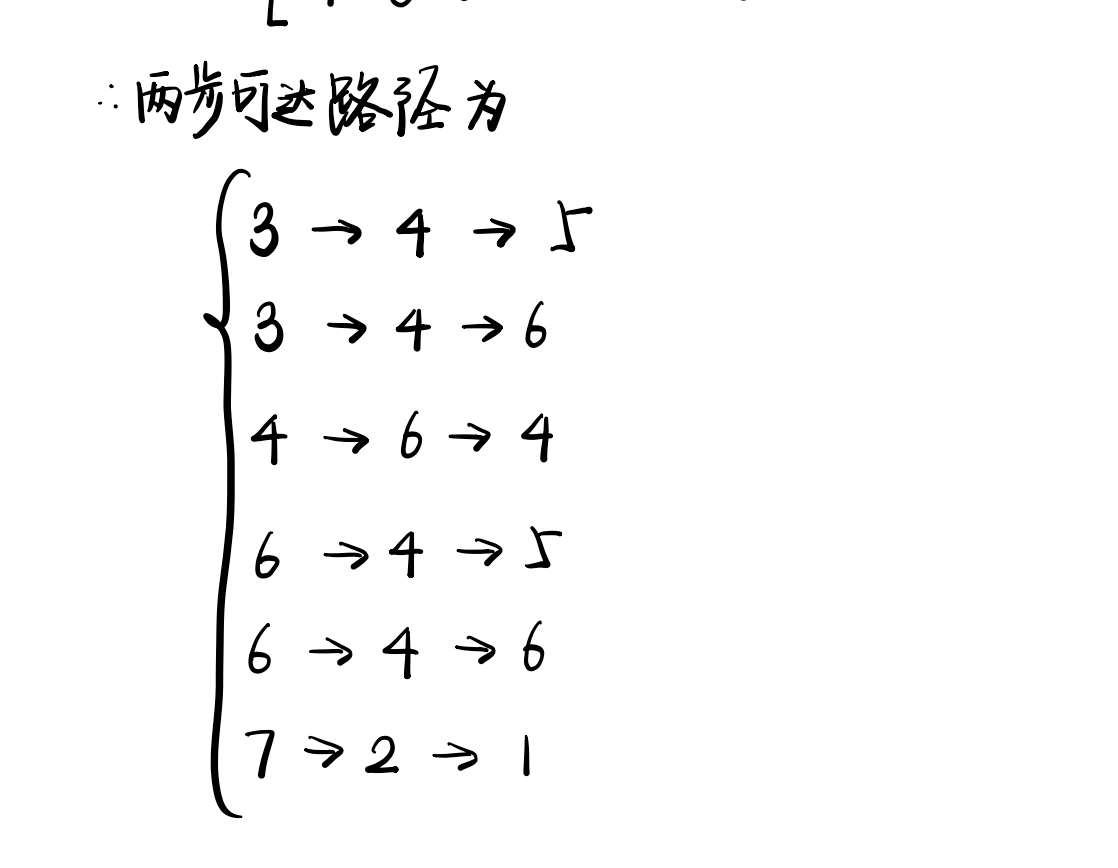 ∴ 两步可达路径为
3 → 4 → 5
3 → 4 → 6
4 → 6 → 4
6 → 4 → 5
6 → 4 → 6
7 → 2 → 1